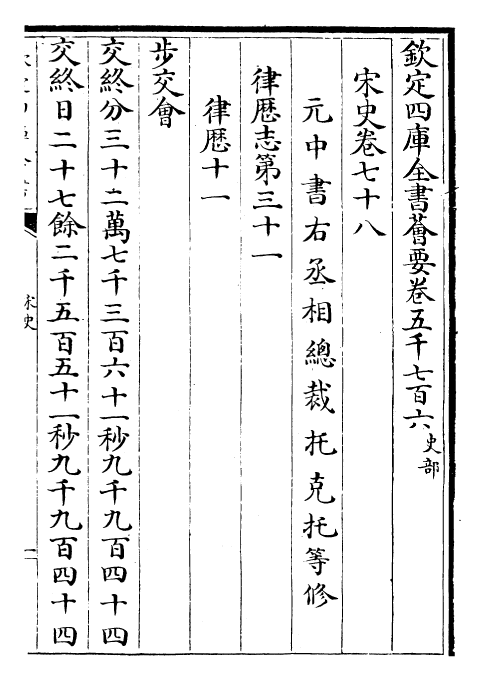 欽定四庫全書薈要卷五千七百六 史部
宋史卷七十八
元中書右丞相總裁托克托等修
律厯志第三十一
律厯十一
步交會
交終分三十二萬七千三百六十一秒九千九百四十四
交終日二十七餘二千五百五十一秒九千九百四十四
宋史